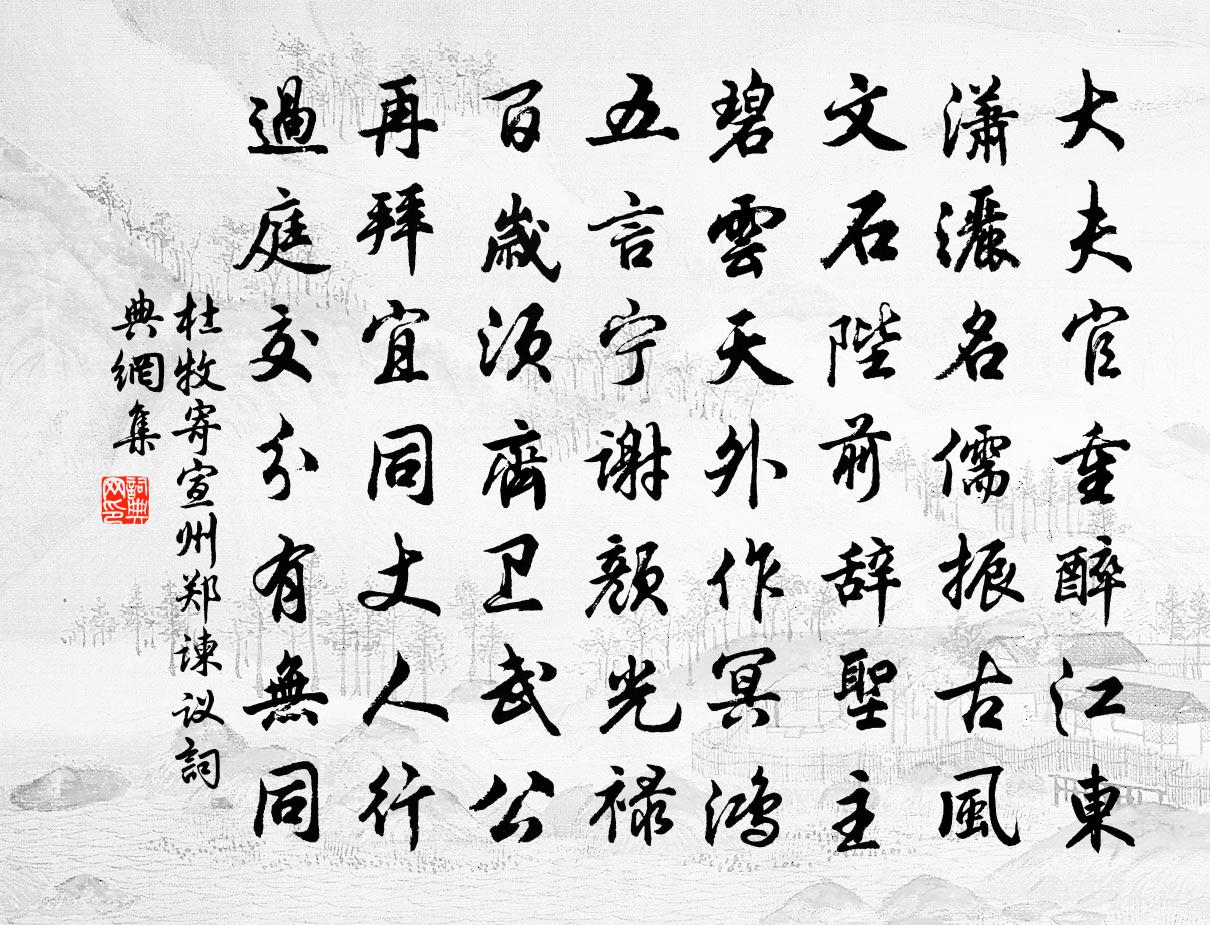 大夫官重醉江東
瀟灑名儒振古風
文石陛前辞聖主
碧雲天外作冥鸿
五言宁謝顔光禄
百歲须齊卫武公
再拜宜同丈人行
過庭交分有無同
杜牧寄宣州郑諫议詞
典網集
詞典
网印